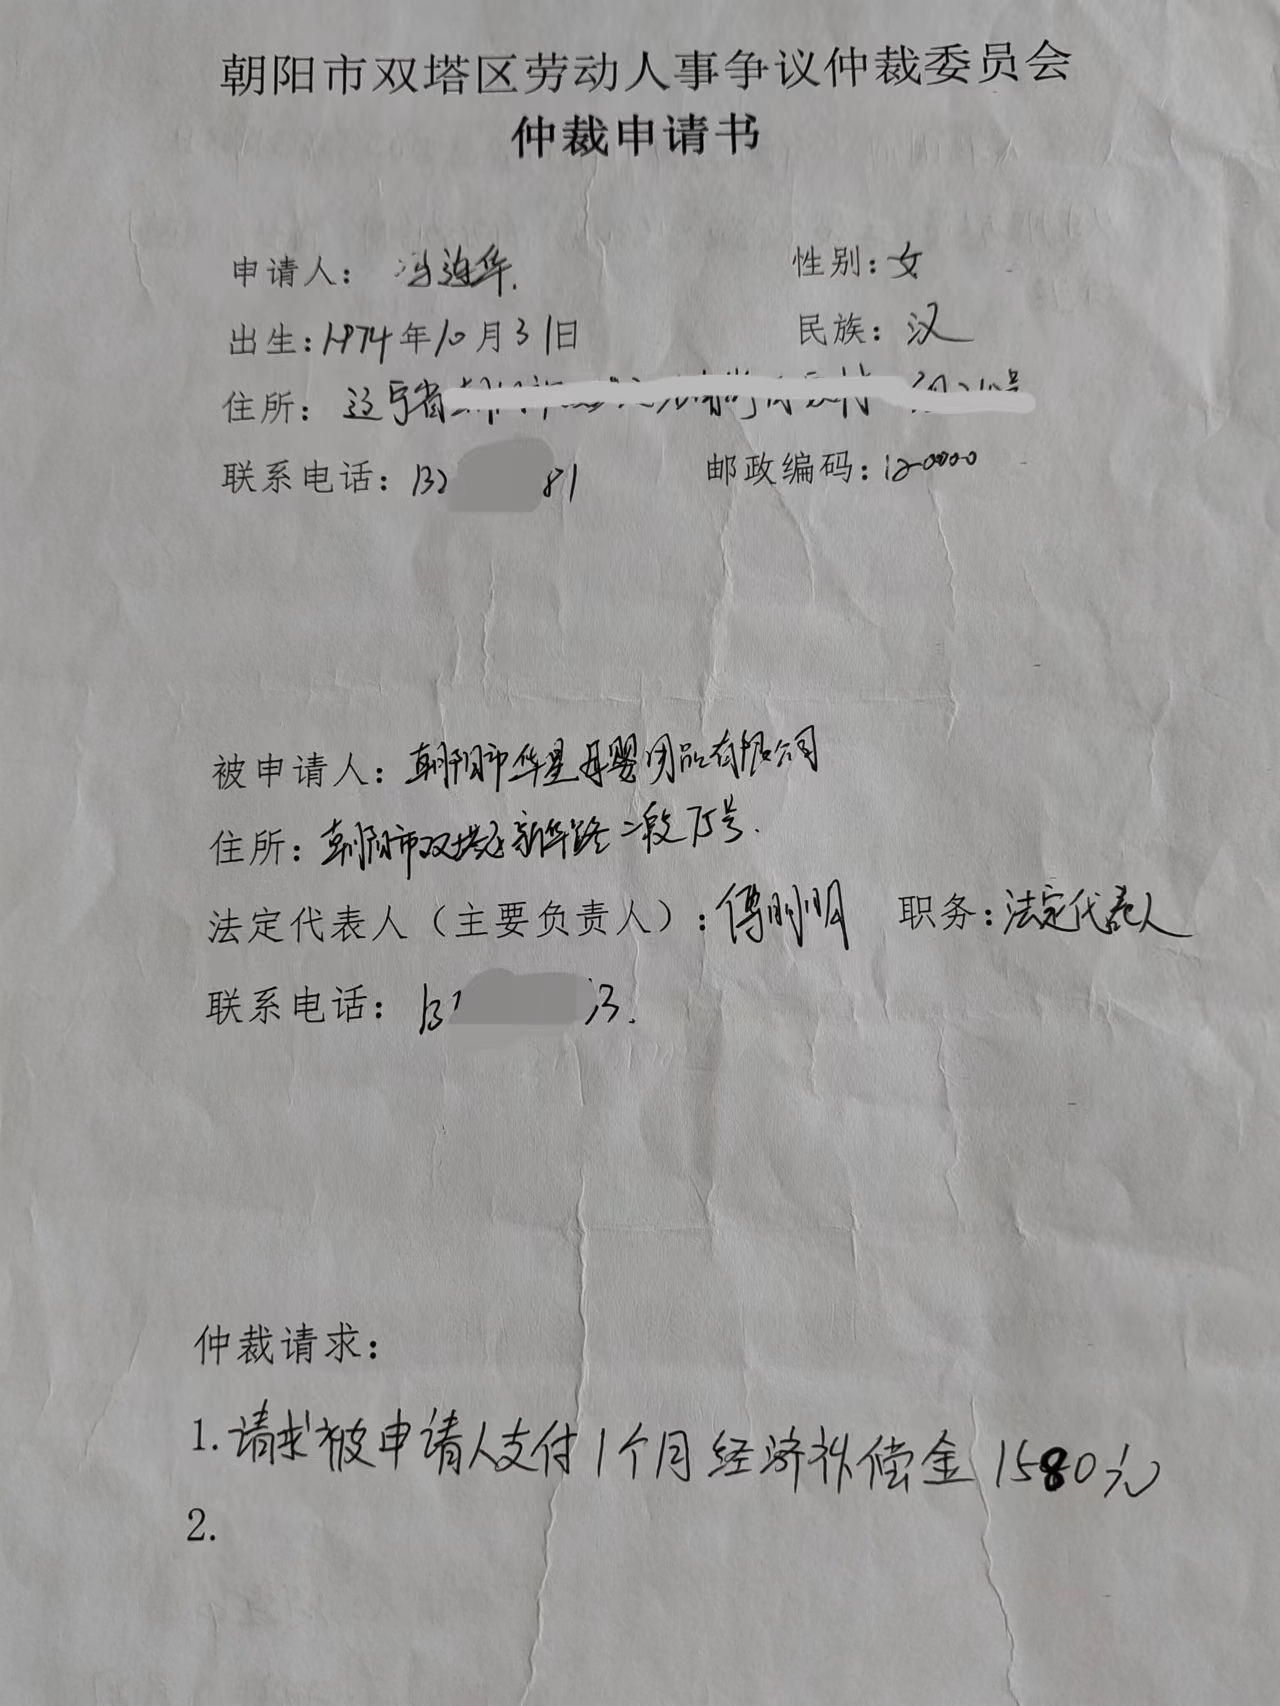 朝阳市双塔区劳动人事争议仲裁委员会
仲裁申请书
申请人： 冯连华. 性别：女
出生：1974年10月31日 民族：汉
住所：辽宁省
联系电话：132 81 邮政编码：120000
被申请人：朝阳市华星母婴用品有限公司
住所：朝阳市双塔区新华路二段75号.
法定代表人（主要负责人）：傅明明 职务：法定代表人
联系电话：13 3.
仲裁请求：
1.请求被申请人支付1个月经济补偿金1580元
2.